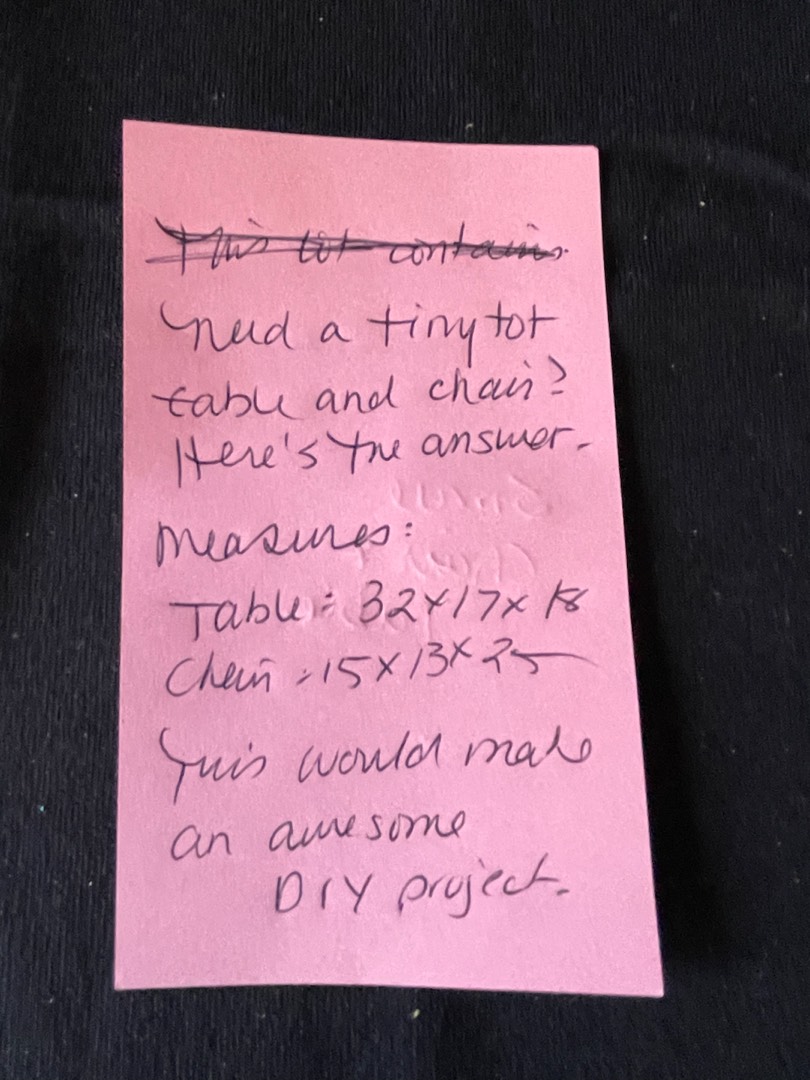 ~~This lot contains~~
Need a tiny tot
table and chair?
Here's the answer.
Measures:
Table: 32x17x18
Chair: 15x13x25
This would make
an awesome
DIY project.